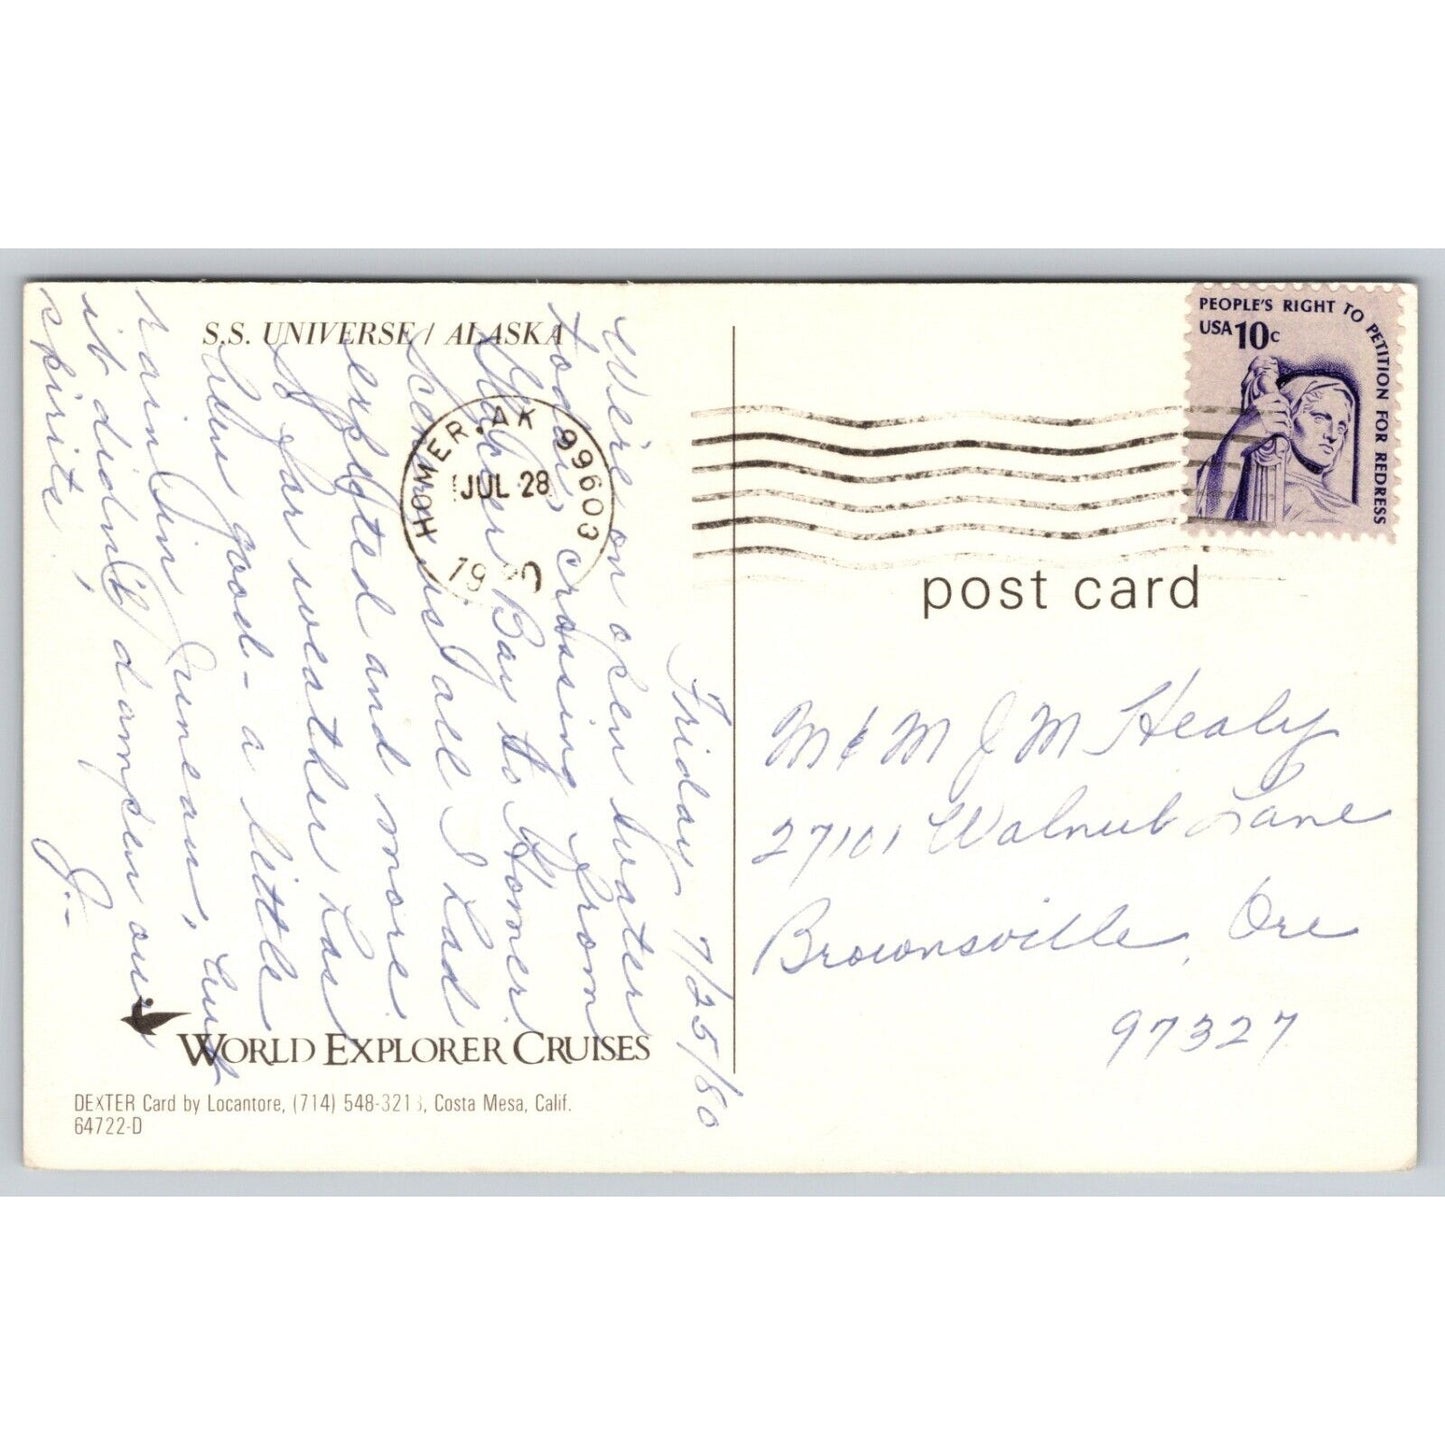 S.S. UNIVERSE / ALASKA
Friday 7/25/80
We're on open water
today, crossing from
Yakutat Bay to Homer.
Scenery is all I had
expected and more.
So far weather has
been good - a little
rain in Juneau, but
it didn't dampen our
spirits,
J.-
WORLD EXPLORER CRUISES
DEXTER Card by Locantore, (714) 548-3213, Costa Mesa, Calif.
64722-D
HOMER, AK 99603
JUL 28
1980
PEOPLE'S RIGHT TO PETITION FOR REDRESS
USA 10c
post card
M & M J M Healy
27101 Walnut Lane
Brownsville, Ore
97327